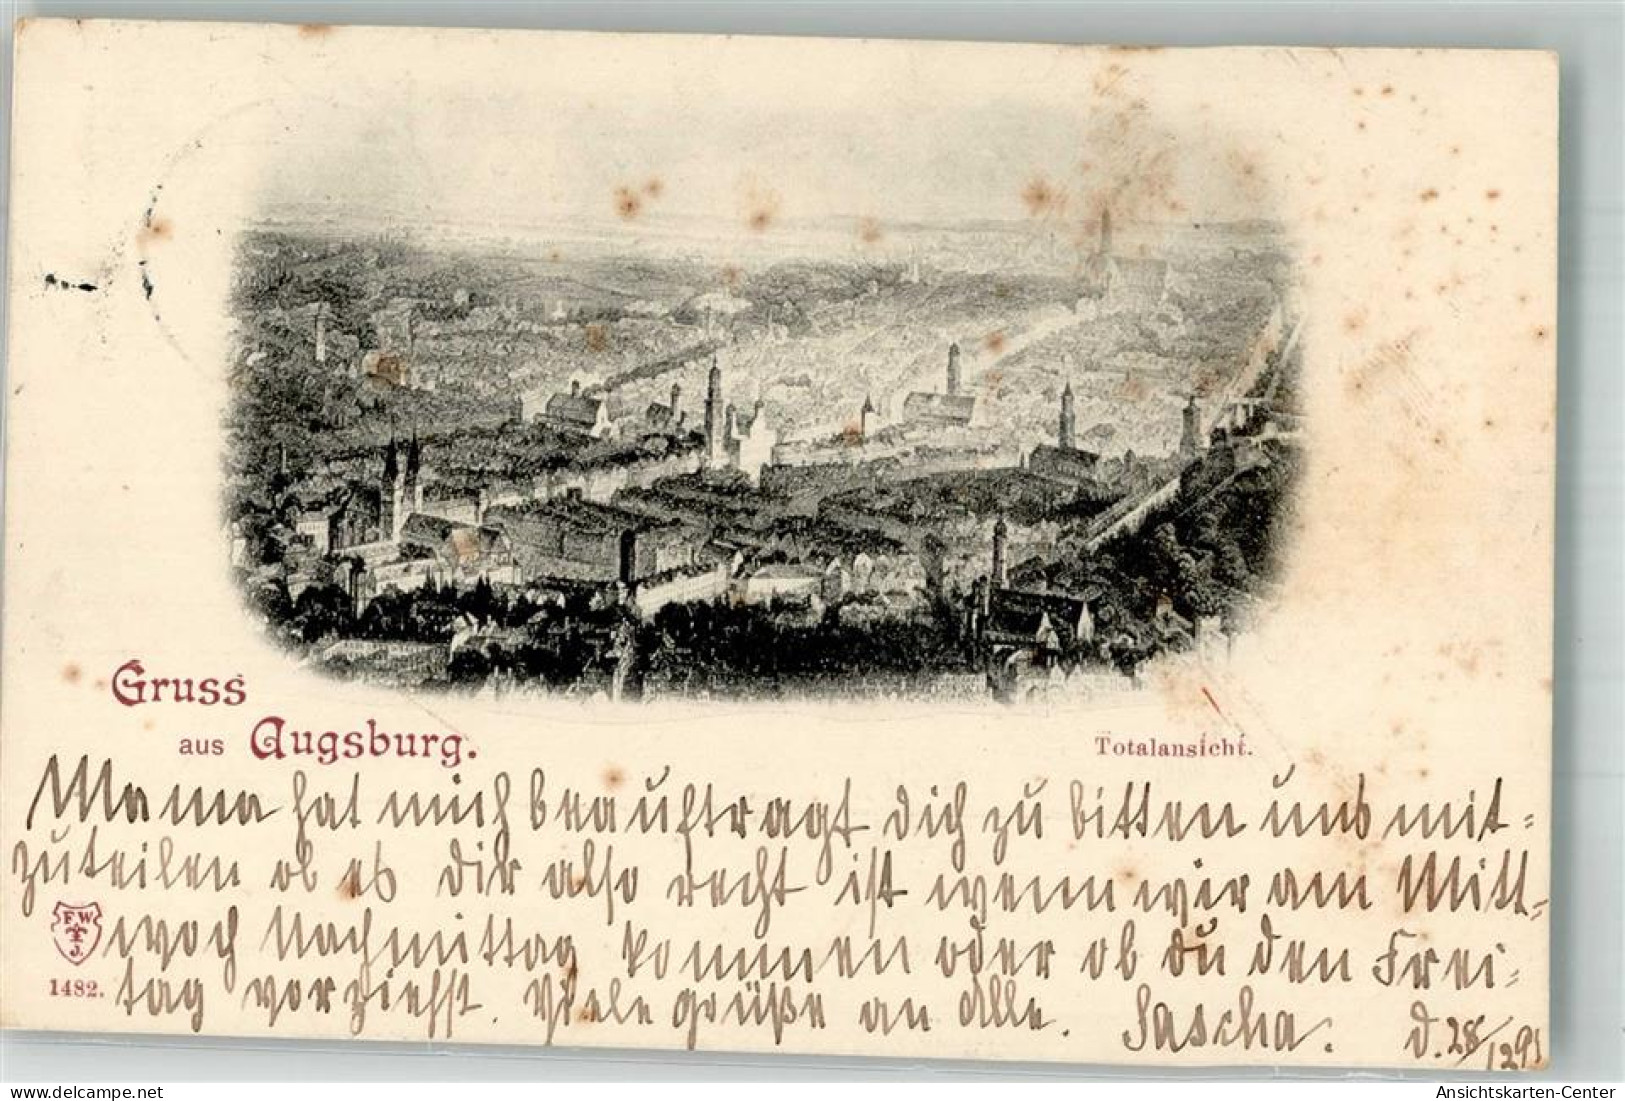 Gruss
aus Augsburg.
Totalansicht.
Mama hat mich beauftragt dich zu bitten uns mit-
zuteilen ob es dir also recht ist wenn wir am Mitt-
woch Nachmittag kommen oder ob du den Frei-
tag vorziehst. Viele grüße an Alle. Sascha.
F. W.
J.
1482.
d. 28/12 91
Ansichtskarten-Center
delcampe.net